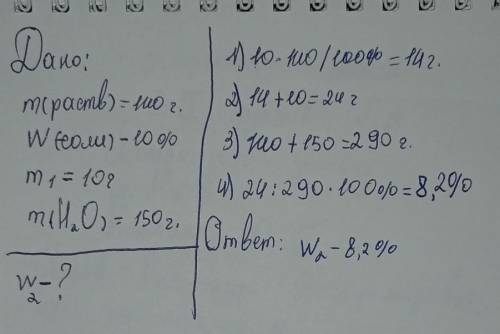 Дано:
m(раств)=140г.
W(соли)-10%
m₁=10г
m(H₂O)=150г.
W₂-?
1) 10·140/100%=14г.
2) 14+10=24г
3) 140+150=290г.
4) 24:290·100%=8,2%
Ответ: W₂-8,2%